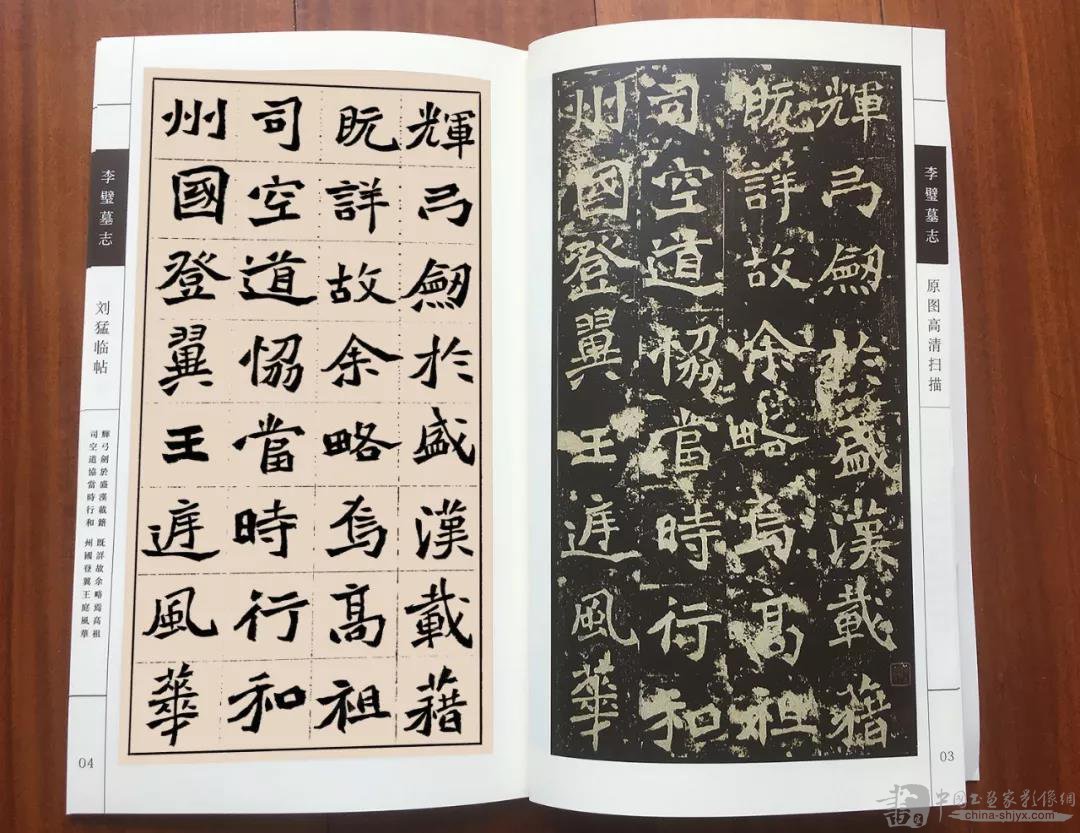 輝弓劒於盛漢載藉
既詳故余略焉高祖
司空道恊當時行和
州國登翼王庭風華
李璧墓志
原图高清扫描
03
輝弓劒於盛漢載藉
既詳故余略焉高祖
司空道恊當時行和
州國登翼王庭風華
李璧墓志
刘猛临帖
輝弓劍於盛漢載籍 既詳故余略焉高祖
司空道協當時行和 州國登翼王庭風華
04
中國书画家影像網
china-shjyx.com